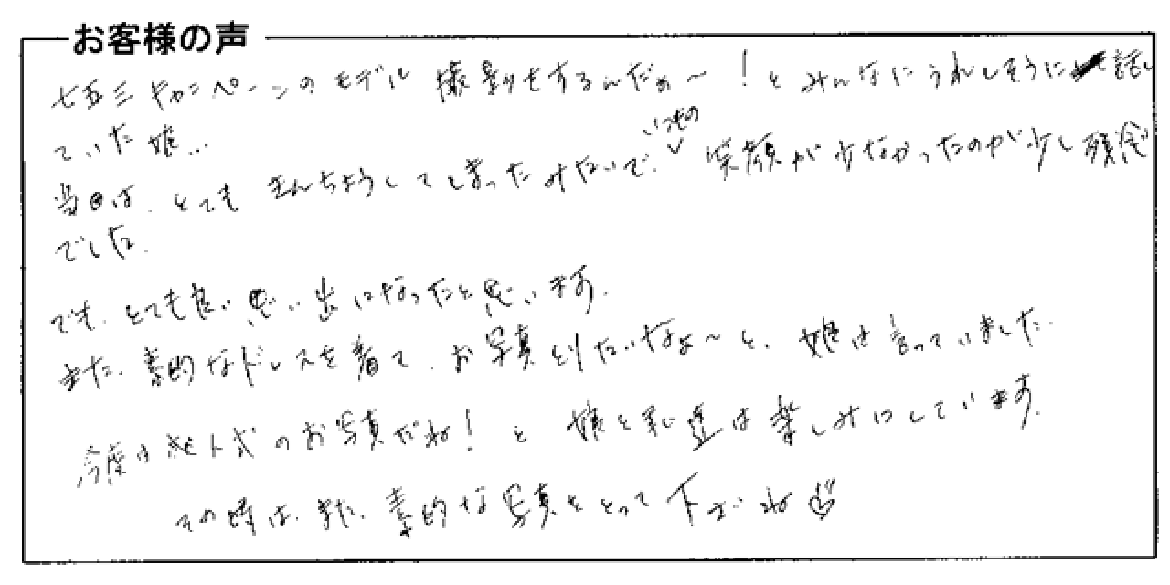 お客様の声
七五三キャンペーンのモデル撮影をするんだぁ～！とみんなにうれしそうに話し
ていた娘…
いつもの
当日は、とてもきんちょうしてしまったみたいで、笑顔が少なかったのが少し残念
でした。
でも、とても良い思い出になったと思います。
また、素敵なドレスを着て、お写真とりたいなぁ～と、娘は言っていました。
今度は成人式のお写真だね！と娘と私達は楽しみにしています。
その時は、また、素敵な写真をとって下さいね